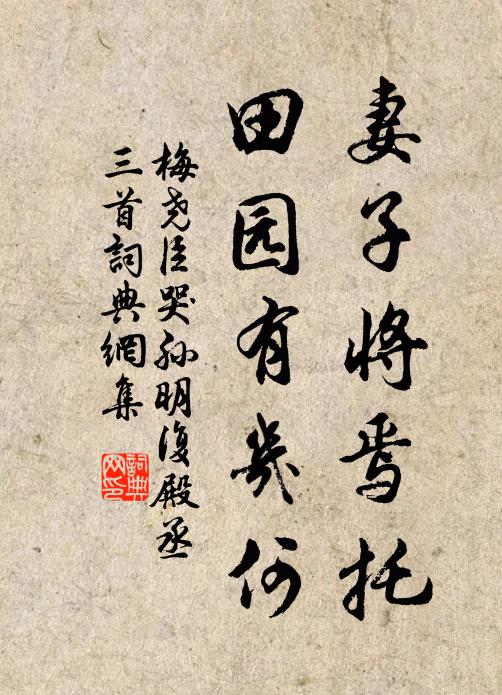 妻子将焉托
田园有幾何
梅尧臣哭孙明復殿丞
三首詞典網集
詞典
网印